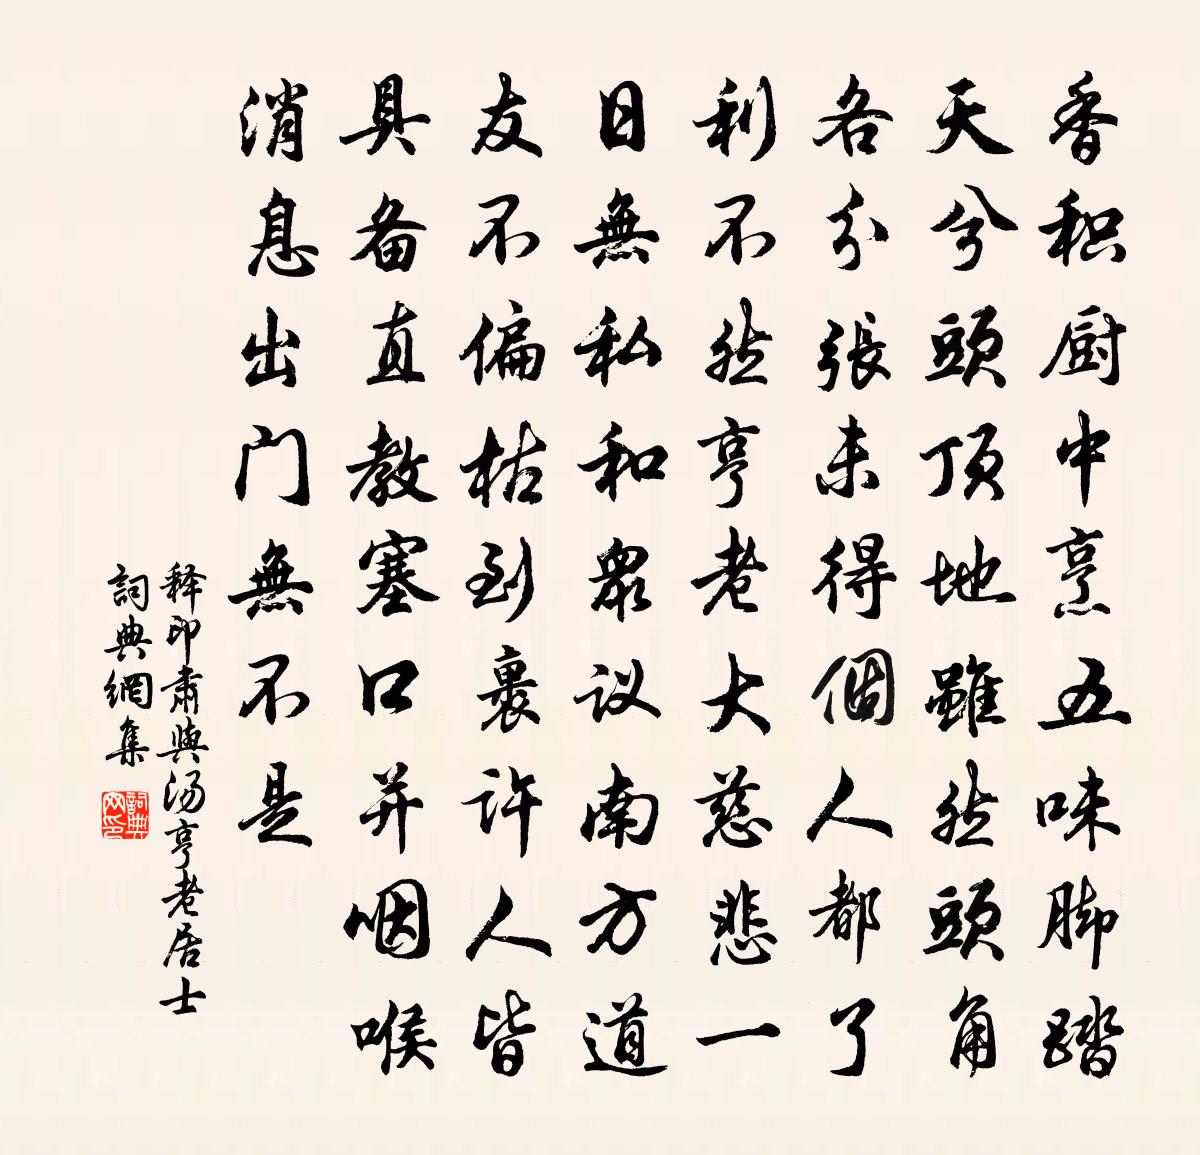 香积厨中烹五味脚踏
天兮頭顶地雖然頭角
各分張未得個人都了
利不然亨老大慈悲一
日無私和眾议南方道
友不偏枯到裹许人皆
具备直教塞口并咽喉
消息出门無不是
释印肃與汤亨老居士
詞典網集
詞典
网印